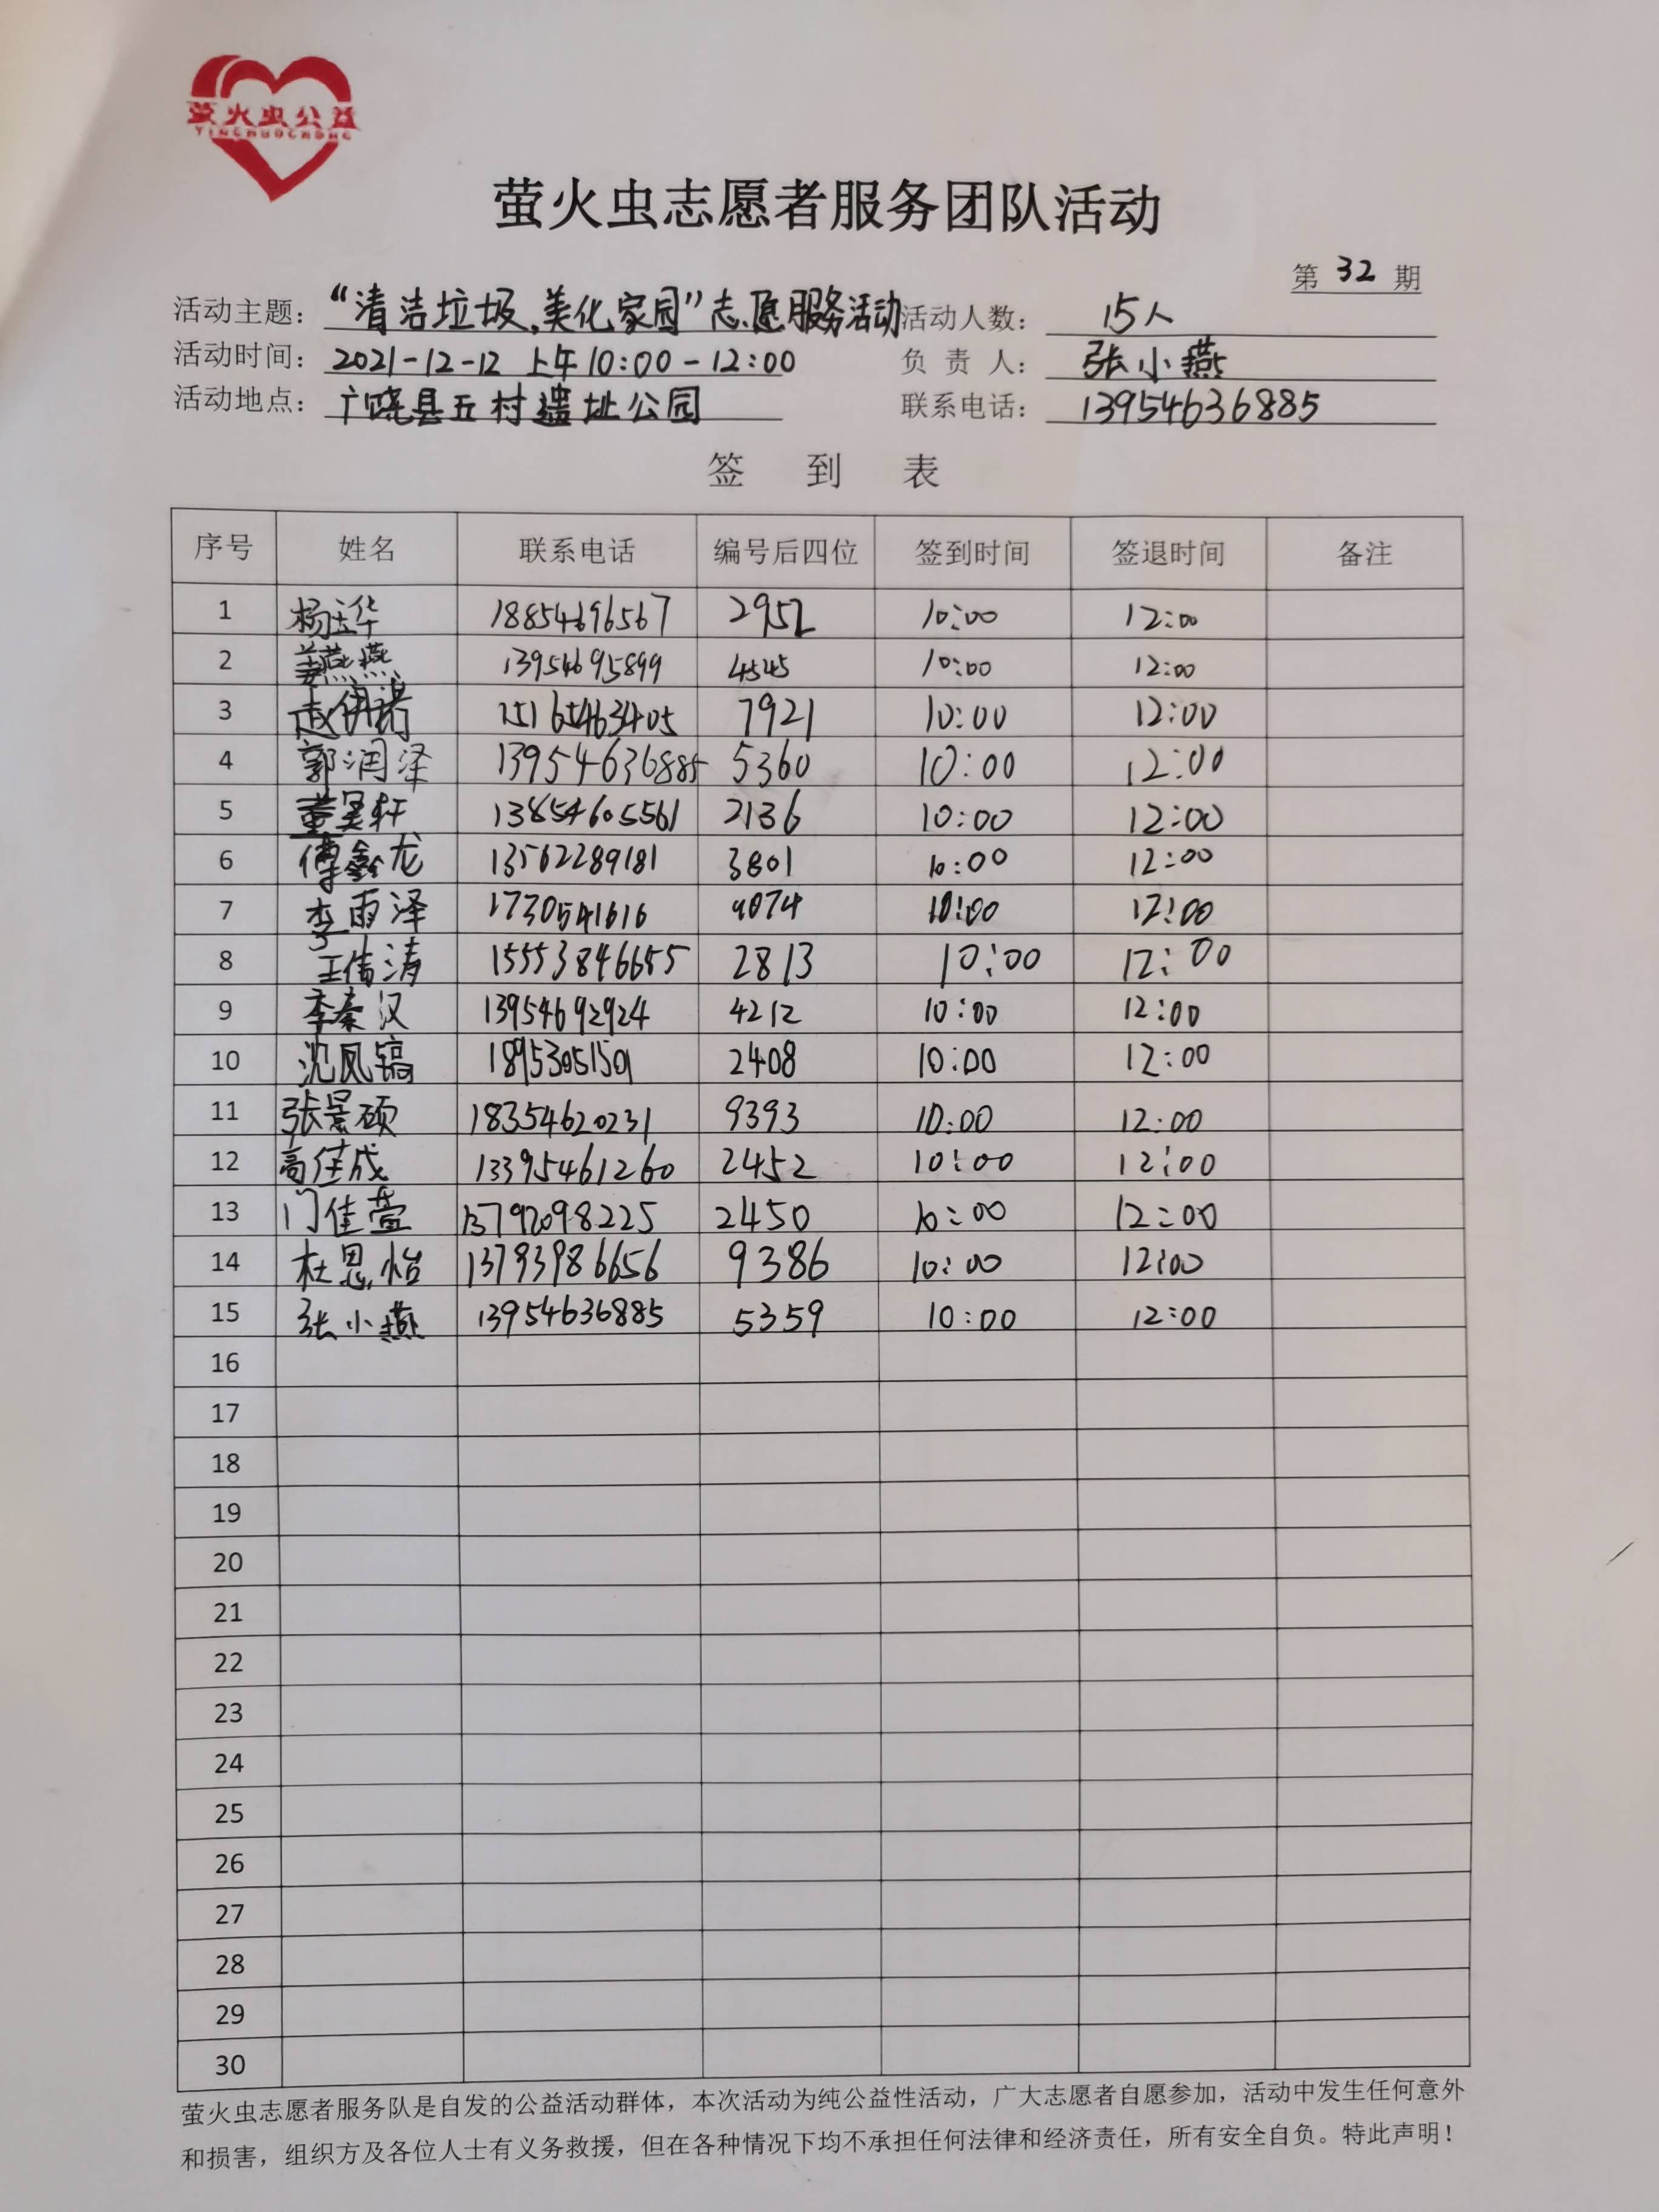 萤火虫公益
YINGHUOCHONG
萤火虫志愿者服务团队活动
第 32 期
活动主题： “清洁垃圾,美化家园”志愿服务活动 活动人数： 15人
活动时间： 2021-12-12 上午10:00-12:00 负 责 人： 张小燕
活动地点： 广饶县五村遗址公园 联系电话： 13954636885
签 到 表
序号 姓名 联系电话 编号后四位 签到时间 签退时间 备注
1 杨玉华 18854696567 2952 10:00 12:00
2 姜燕燕 13954695899 4545 10:00 12:00
3 赵伊诺 15165463405 7921 10:00 12:00
4 郭润泽 13954636885 5360 10:00 12:00
5 董昊轩 13854605561 2136 10:00 12:00
6 傅鑫龙 13562289181 3801 10:00 12:00
7 李雨泽 1730541616 4074 10:00 12:00
8 王倩清 15553846655 2813 10:00 12:00
9 李秦汉 13954692924 4212 10:00 12:00
10 沈凤镐 18953051501 2408 10:00 12:00
11 张景硕 18354620231 9393 10:00 12:00
12 高佳成 13395461260 2452 10:00 12:00
13 门佳萱 13792098225 2450 10:00 12:00
14 杜思怡 13793986656 9386 10:00 12:00
15 张小燕 13954636885 5359 10:00 12:00
16
17
18
19
20
21
22
23
24
25
26
27
28
29
30
萤火虫志愿者服务队是自发的公益活动群体，本次活动为纯公益性活动，广大志愿者自愿参加，活动中发生任何意外
和损害，组织方及各位人士有义务救援，但在各种情况下均不承担任何法律和经济责任，所有安全自负。特此声明！